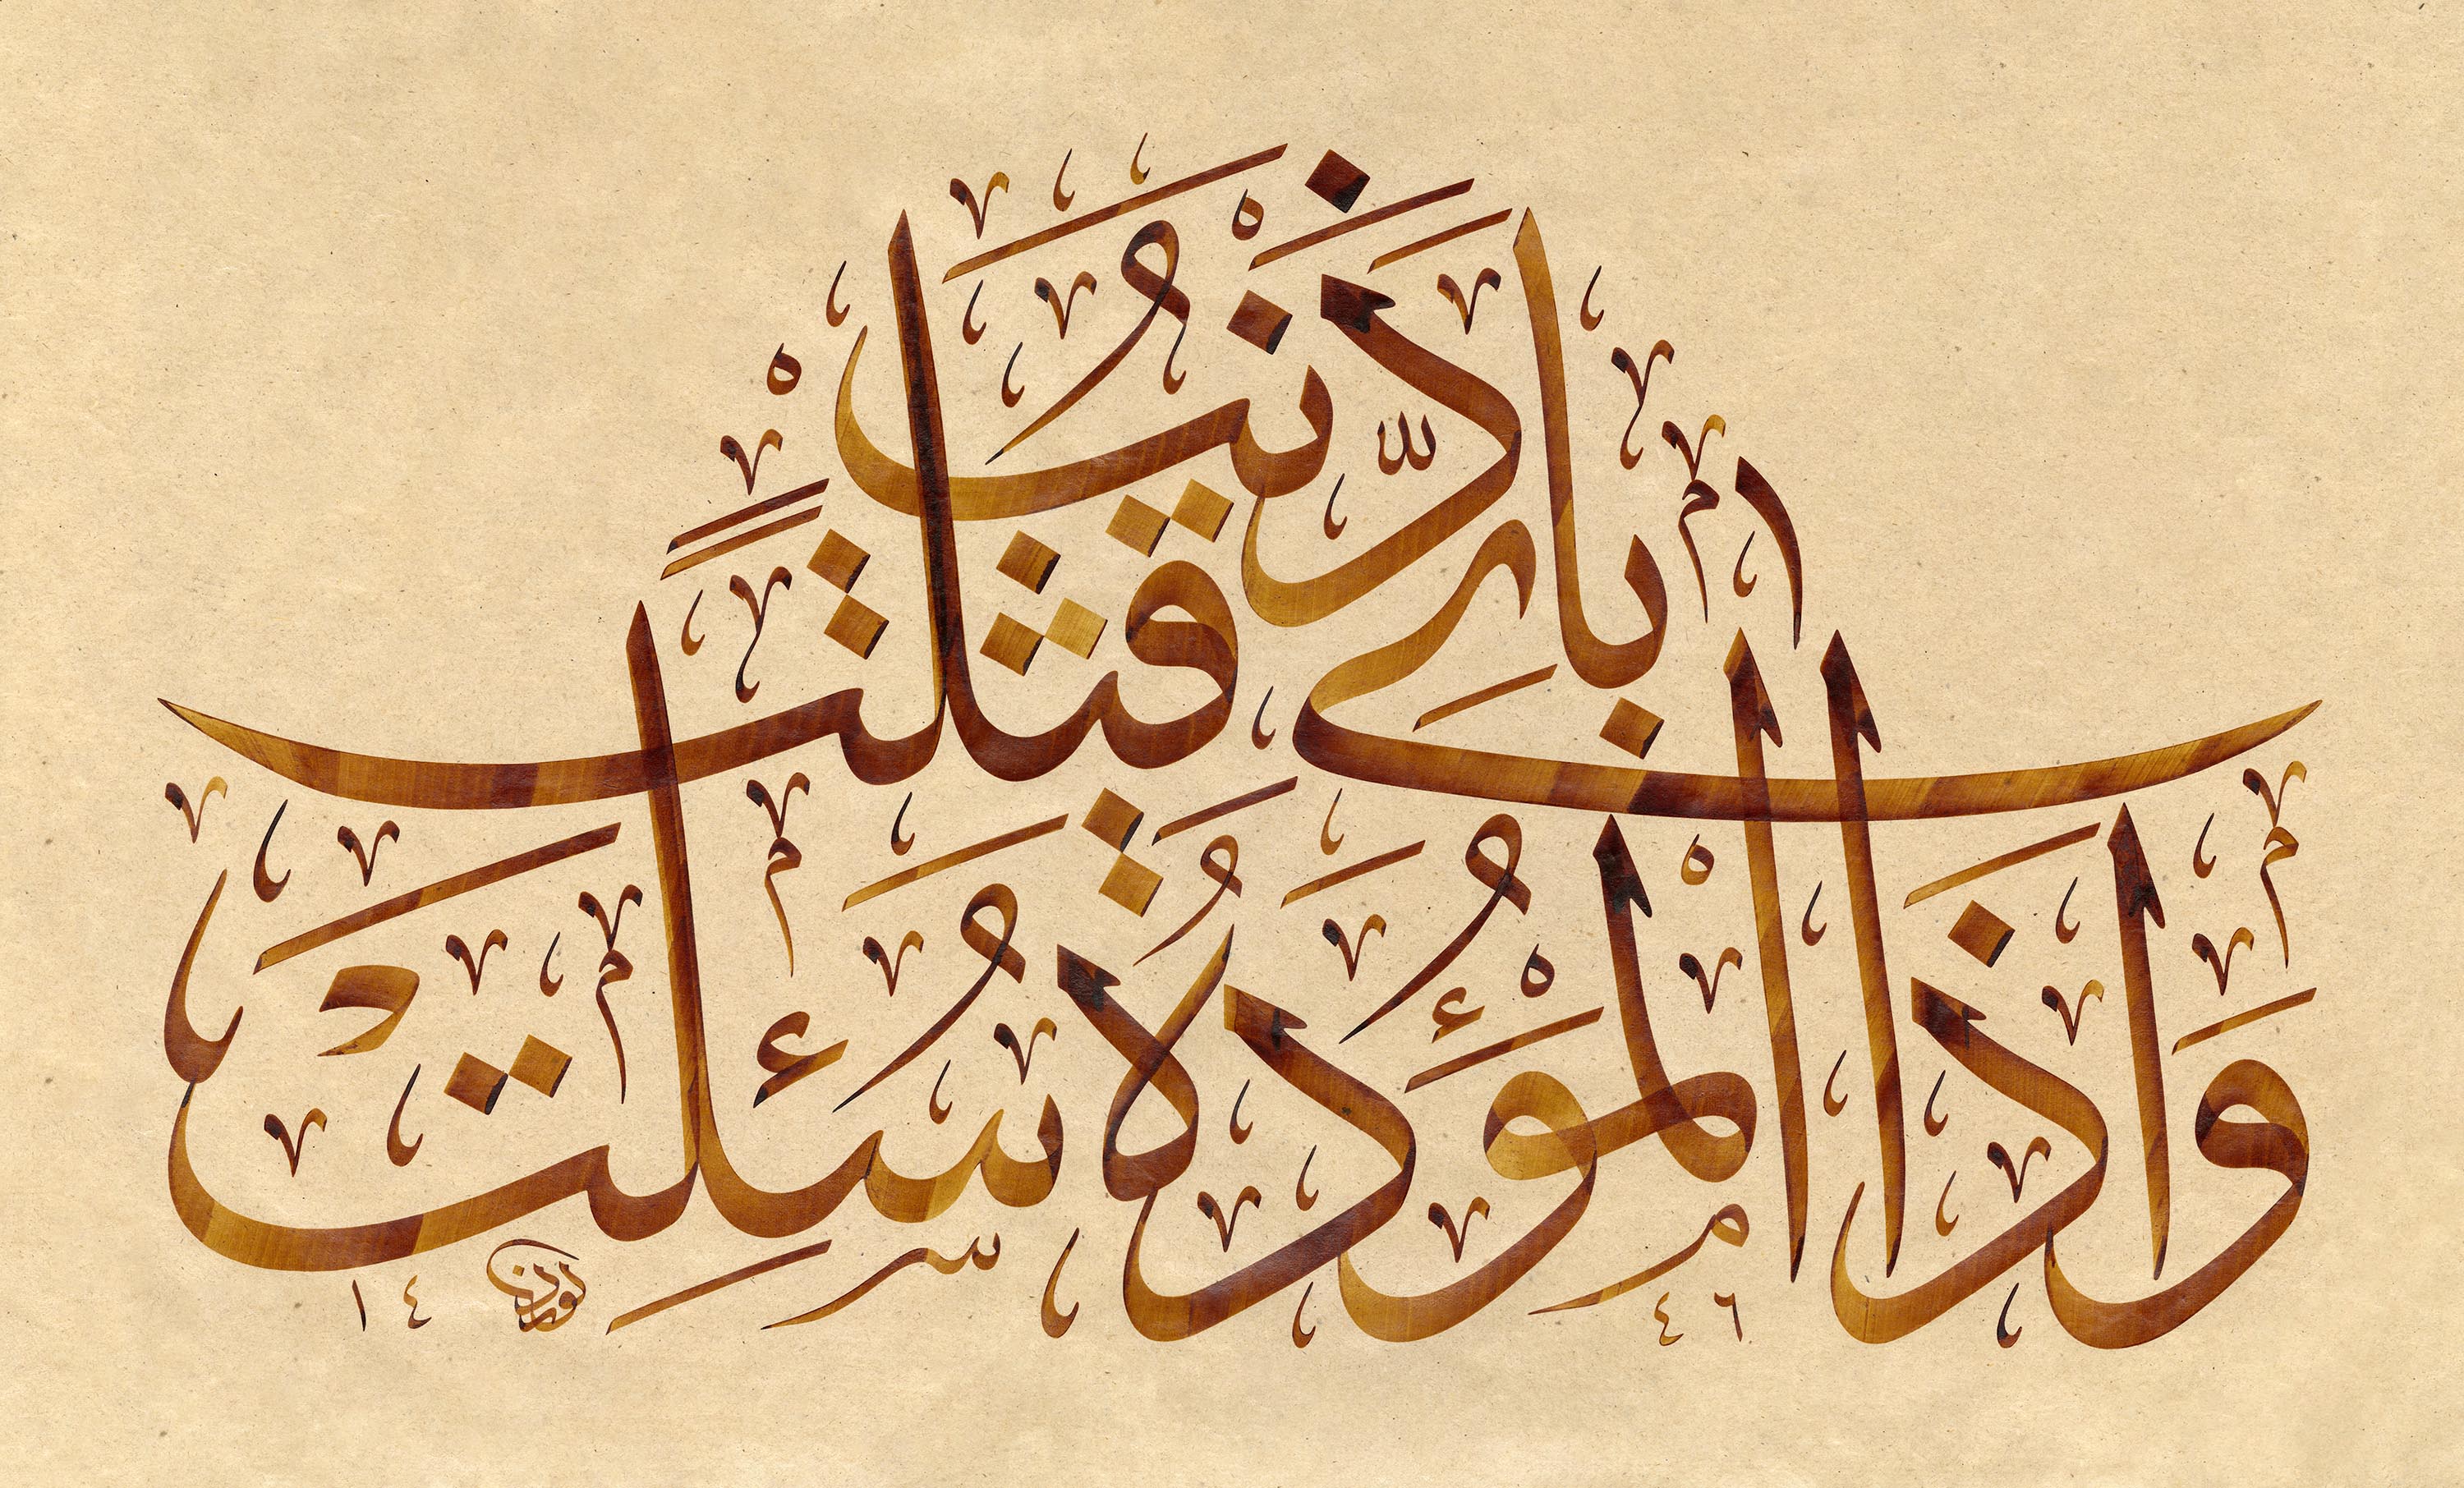 وَإِذَا الْمَوْءُودَةُ سُئِلَتْ
بِأَيِّ ذَنْبٍ قُتِلَتْ